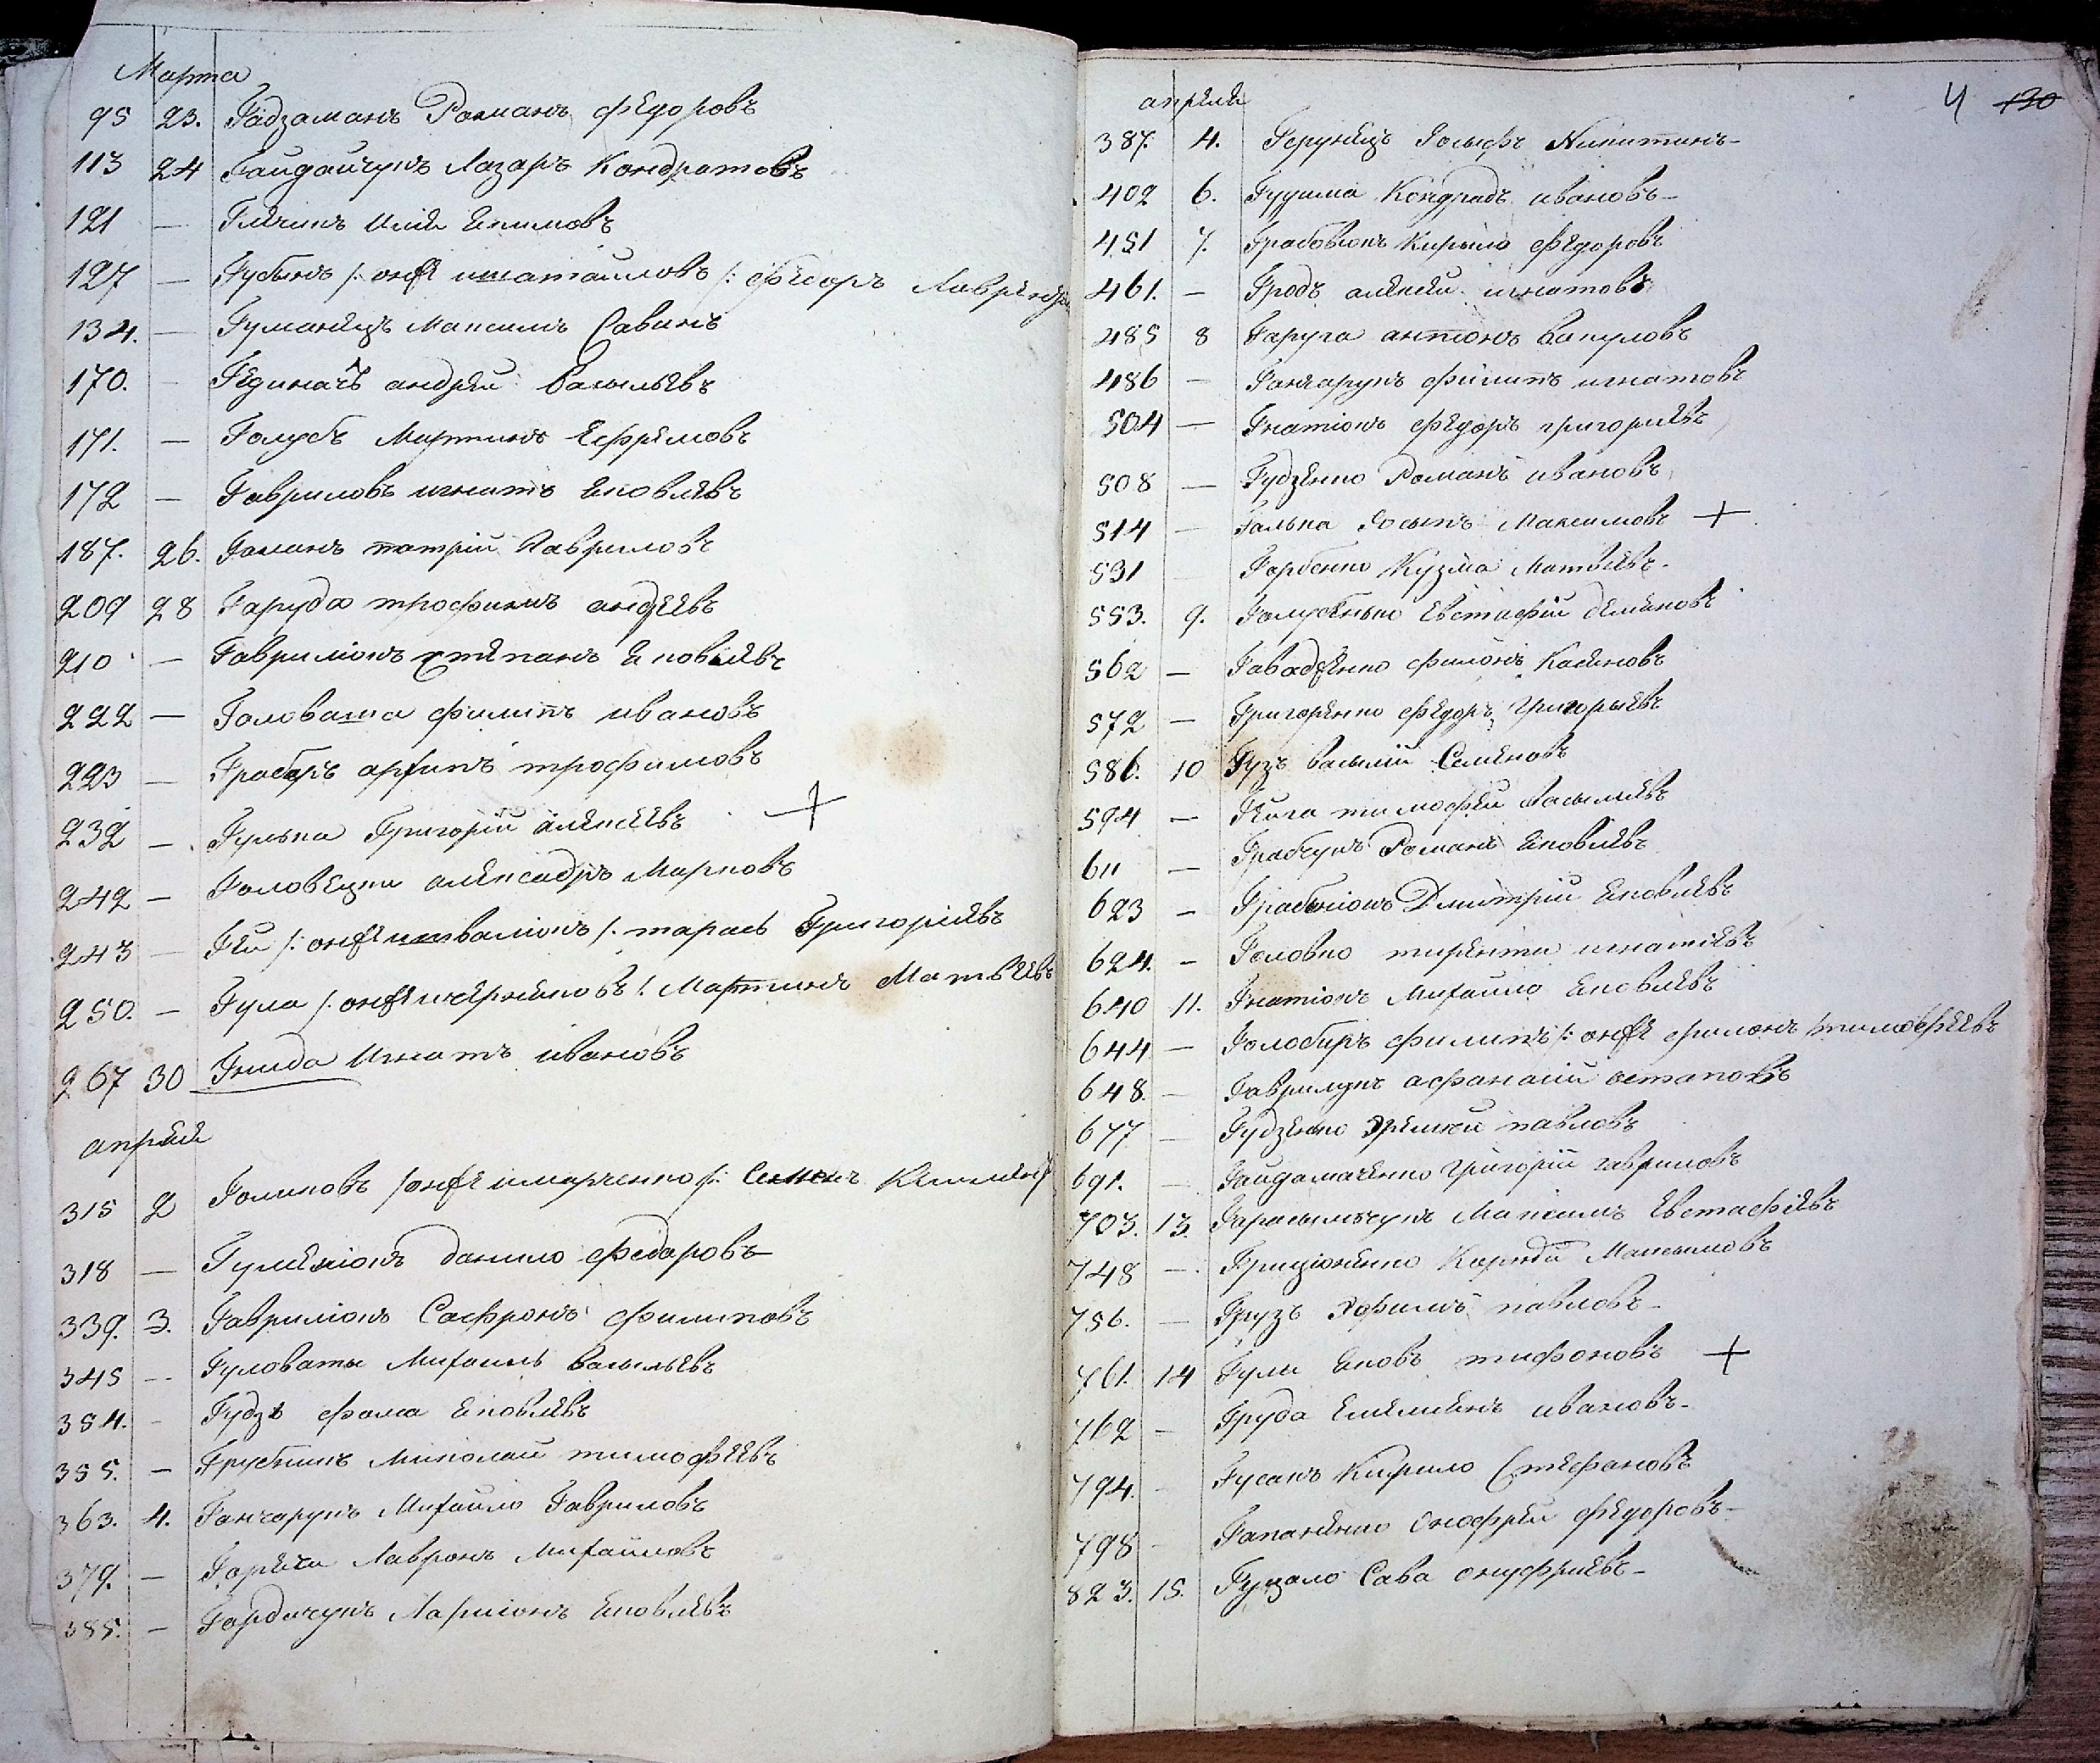 Марта
95 23. Гадзаманъ Романъ федоровъ
113 24 Гайдайчукъ Лазаръ Кондратовъ
121 — Илія Екимовъ
127 — /: онже :/ федоръ
134. — Гуманецъ Максимъ Савинъ
170. — андрей Васильевъ
171. — Голубъ Мартинъ Ефремовъ
172 — Гавриловъ игнатъ Яковлевъ
187. 26. Гаманъ патрій Гавриловъ
209 28 Гаруда трофимъ андреевъ
210 — Гавриліокъ степанъ Яковлевъ
222 — Головата филипъ ивановъ
223 — Грабаръ архипъ трофимовъ
232 — Гулька Григорій алексеевъ +
242 — александръ Марковъ
243 — Гей /: онже :/ тарасъ Григоріевъ
250. — Гула /: онже :/ Мартинъ Матвеевъ
267 30 Гнида Игнатъ ивановъ
апреля
315 2 Голиковъ /: онже :/ Семенъ
318 — Гуменіокъ данило федоровъ
339. 3. Гавриліокъ Сафронъ филиповъ
345 — Гуловаты Михаилъ Васильевъ
354. — Гудзь фома Яковлевъ
355. — Николай тимофеевъ
363. 4. Ганчарукъ Михайло Гавриловъ
379. — Лавронъ Михайловъ
385. — Гордичукъ Ларіонъ Яковлевъ
4 130
апреля
387. 4. Герунецъ Іосифъ Никитинъ
402 6. Гудима Кондратъ ивановъ
451 7. Грабовюкъ Кирыло федоровъ
461. — Гродъ алексей игнатовъ
485 8 Гаруга антонъ Вакуловъ
486 — Ганчарукъ филипъ игнатовъ
504 — Гнатіокъ федоръ григоріевъ
508 — Гудзенко Романъ ивановъ
514 — Галька Іосипъ Максимовъ +
531 — Горбенко Кузма Матвеевъ
553. 9. Евстафій
562 — филонъ
572 — Григоренко федоръ Григорьевъ
586. 10 Гузъ василій Семеновъ
594 — тимофей Васильевъ
611 — Грабчукъ Романъ Яковлевъ
623 — Дмитрій Яковлевъ
624. — Головко терентій игнатіевъ
640 11. Гнатіокъ Михайло Яковлевъ
644 — Голобиръ филипъ /: онже филонъ тимофеевъ
648. — Гаврилукъ афанасій остаповъ
677 — Гудзенко павловъ
691. — Гайдамаченко Григорій гавриловъ
703. 13. Гарасымчукъ Максимъ Евстафіевъ
748 — Грицюненко Максымовъ
756. — Грузъ павловъ
761. 14 Гули Яковъ тифоновъ +
762 — Груда Емелианъ ивановъ
794. — Гусакъ Кирило Стефановъ
798 — Гапаненко Онофрей федоровъ
823. 15. Гуцало Сава онуфріевъ